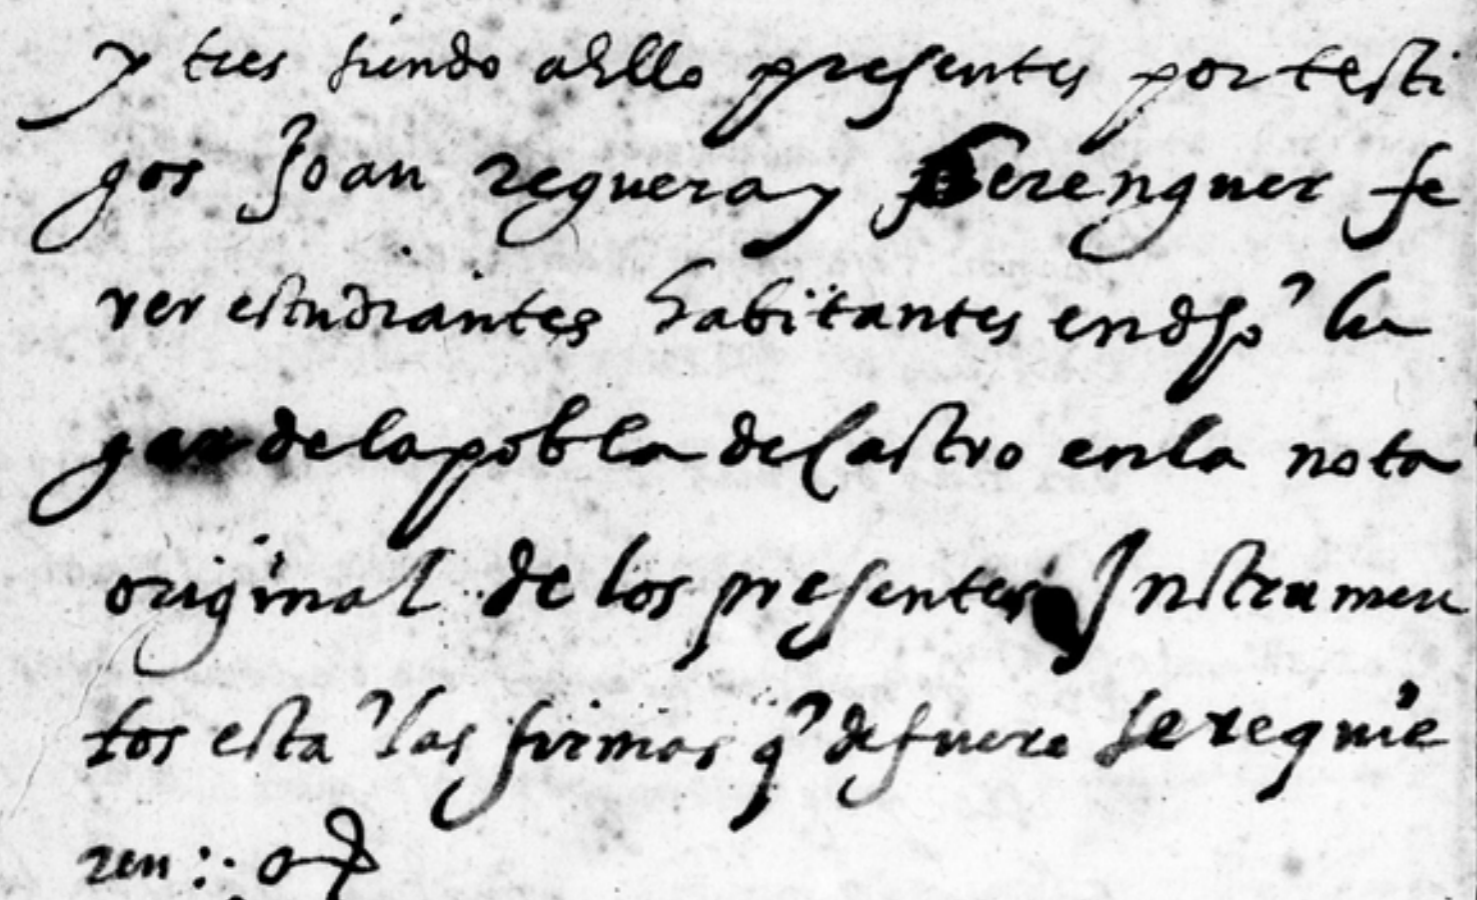 y tres siendo aello presentes por testi
gos Joan reguera y Berenguer fe
rer estudiantes habitantes en dho lu
gar de la pobla de Castro en la nota
original de los presentes Instrumen
tos esta las firmas q de fuero se requie
ren :·